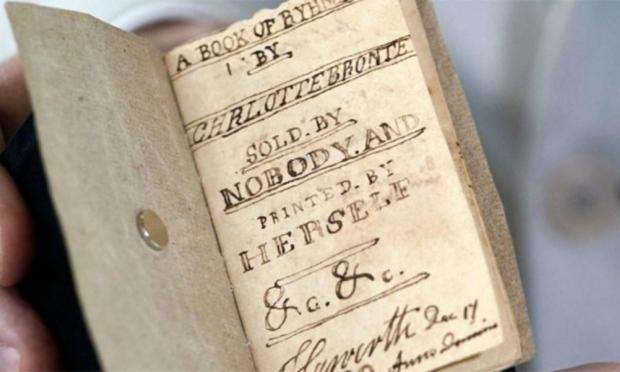 A BOOK OF RYHM
BY
CHRLOTTE BRONTE
SOLD. BY
NOBODY. AND
PRINTED. BY
HERSELF
&c. &c.
Haworth Dec 17.
Anno Domini